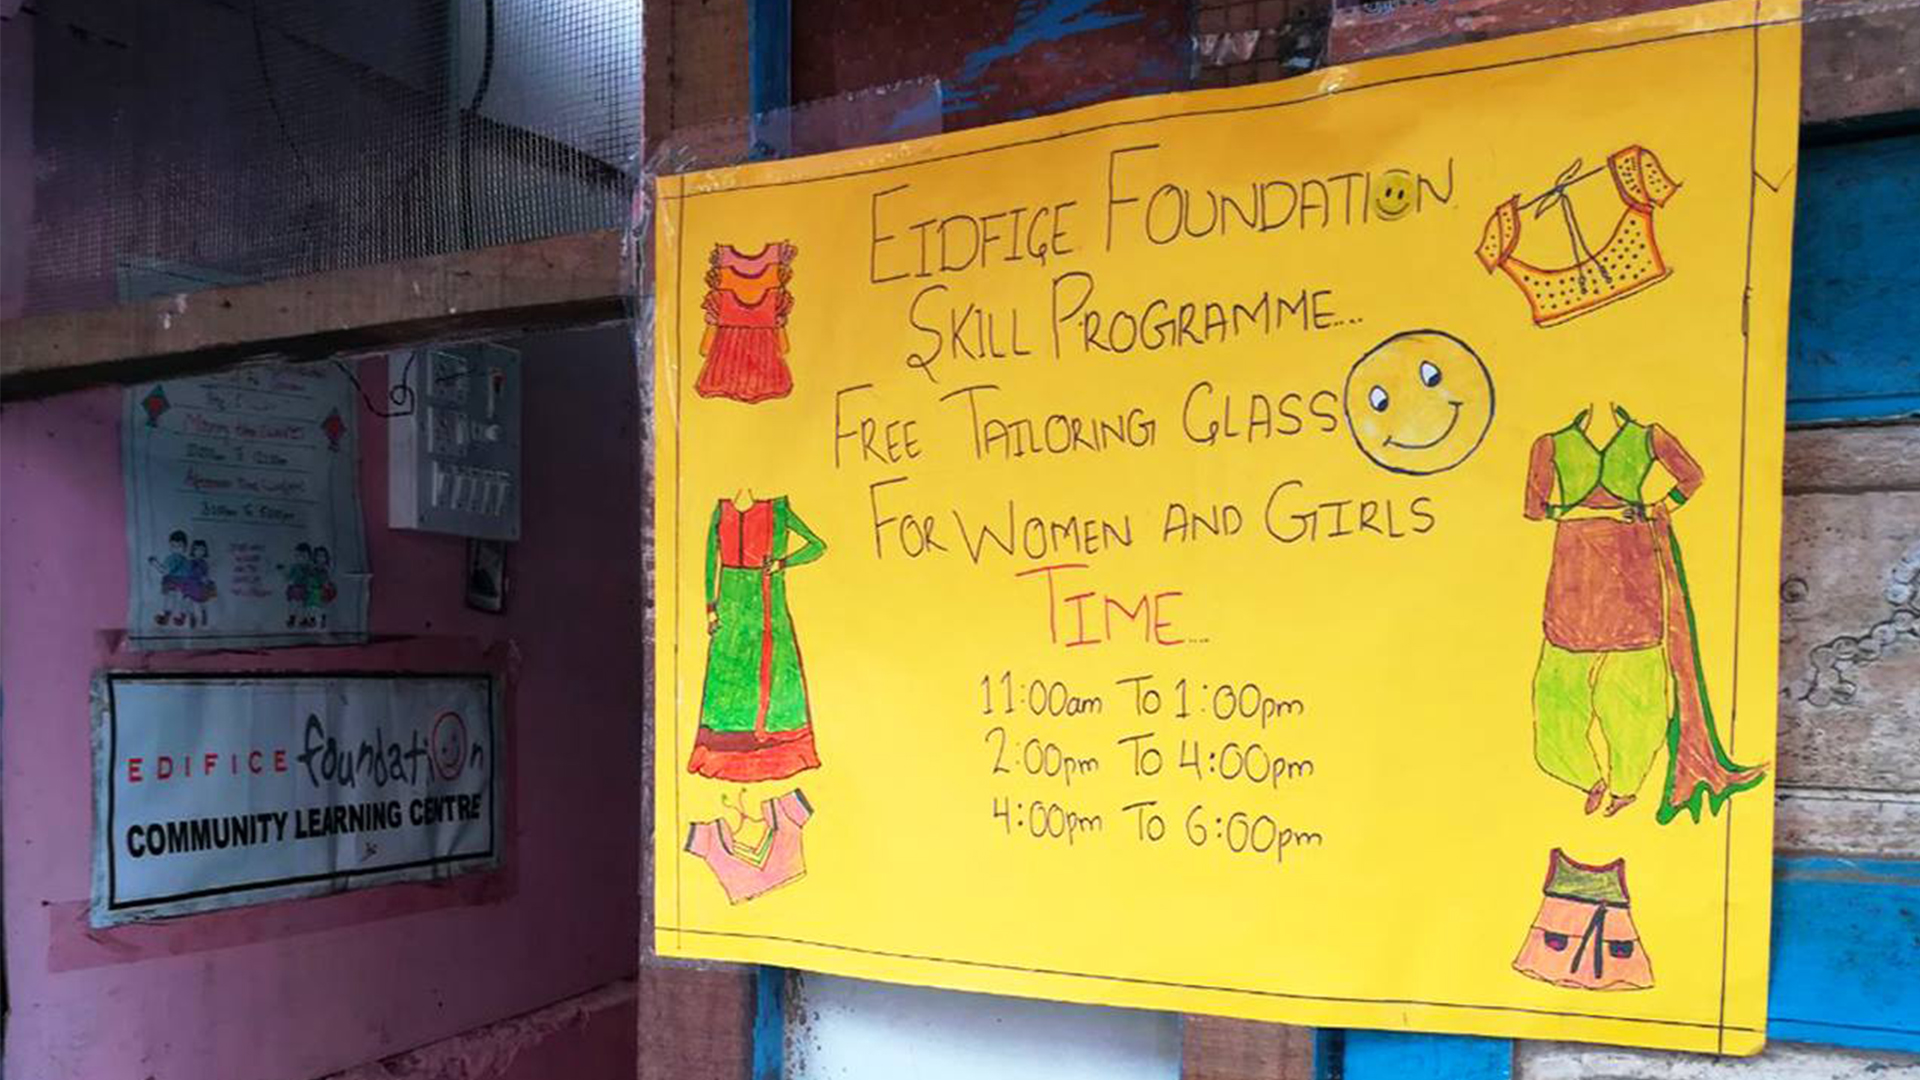 EIDFIGE FOUNDATION
SKILL PROGRAMME....
FREE TAILORING CLASS
FOR WOMEN AND GIRLS
TIME....
11:00am To 1:00pm
2:00pm To 4:00pm
4:00pm To 6:00pm
EDIFICE foundation
COMMUNITY LEARNING CENTRE